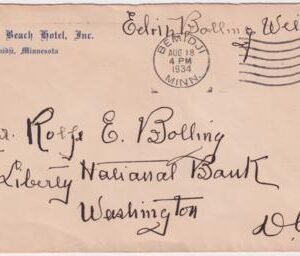 Beach Hotel, Inc.
idji, Minnesota
Edith Bolling Wil
BEMIDJI
AUG 18
4 PM
1934
MINN.
r. Rolfe E. Bolling
Liberty National Bank
Washington
D.C